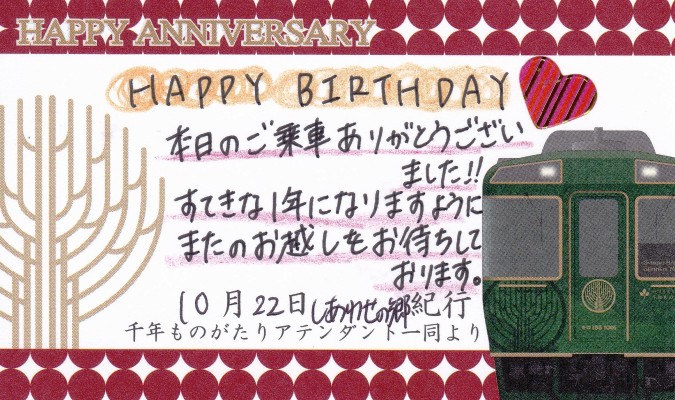 HAPPY ANNIVERSARY
HAPPY BIRTHDAY
本日のご乗車ありがとうござい
ました!!
すてきな1年になりますように
またのお越しをお待ちして
おります。
10月22日しあわせの郷紀行
千年ものがたりアテンダント一同より